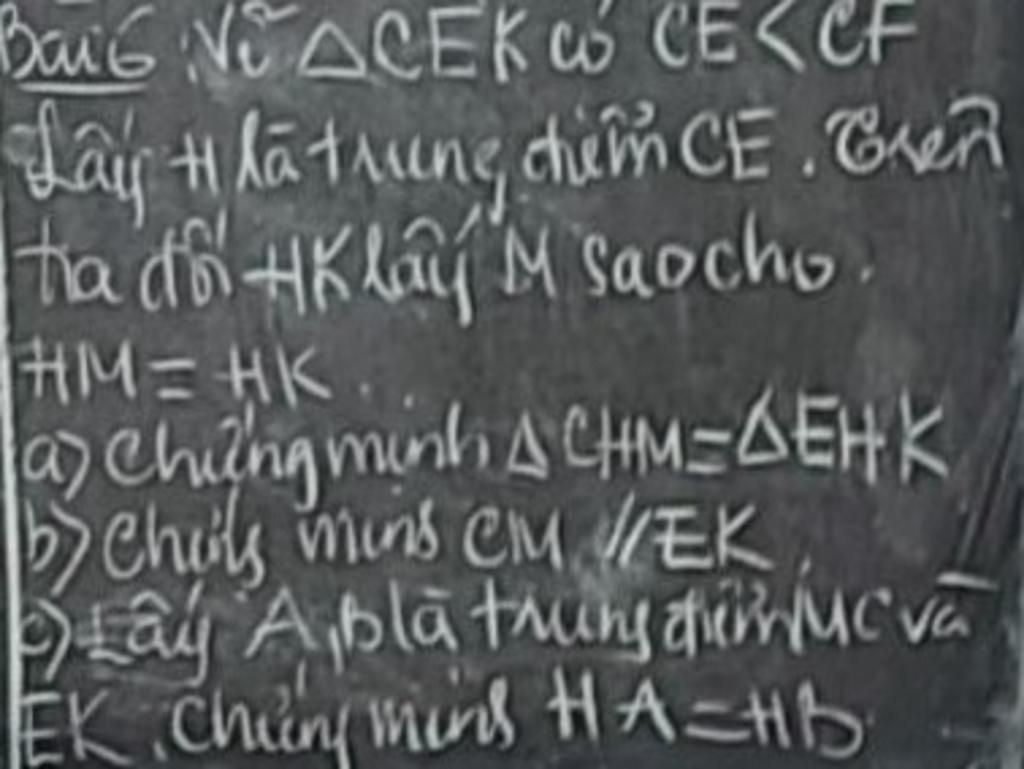 Bài 6 : Vẽ △CEK có CE < CF
Lấy H là trung điểm CE. Trên
tia đối HK lấy M sao cho.
HM = HK.
a) Chứng minh △CHM = △EHK
b) Chứng minh CM // EK
c) Lấy A, B là trung điểm MC và
EK. Chứng minh HA = HB